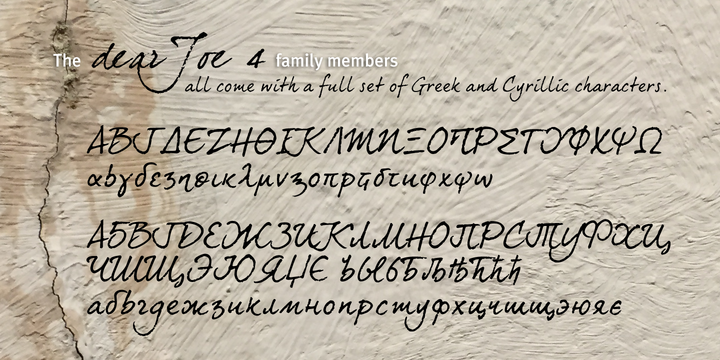 The dear Joe 4 family members
all come with a full set of Greek and Cyrillic characters.
ΑΒΓΔΕΖΗΘΙΚΛΜΝΞΟΠΡΣΤΥΦΧΨΩ
αβγδεζηθικλμνξοπρςστυφχψω
АБВГДЕЖЗИКЛМНОПРСТУФХЦ
ЧШЩЭЮЯЏЄ
абвгдежзиклмнопрстуфхцчшщэюяє